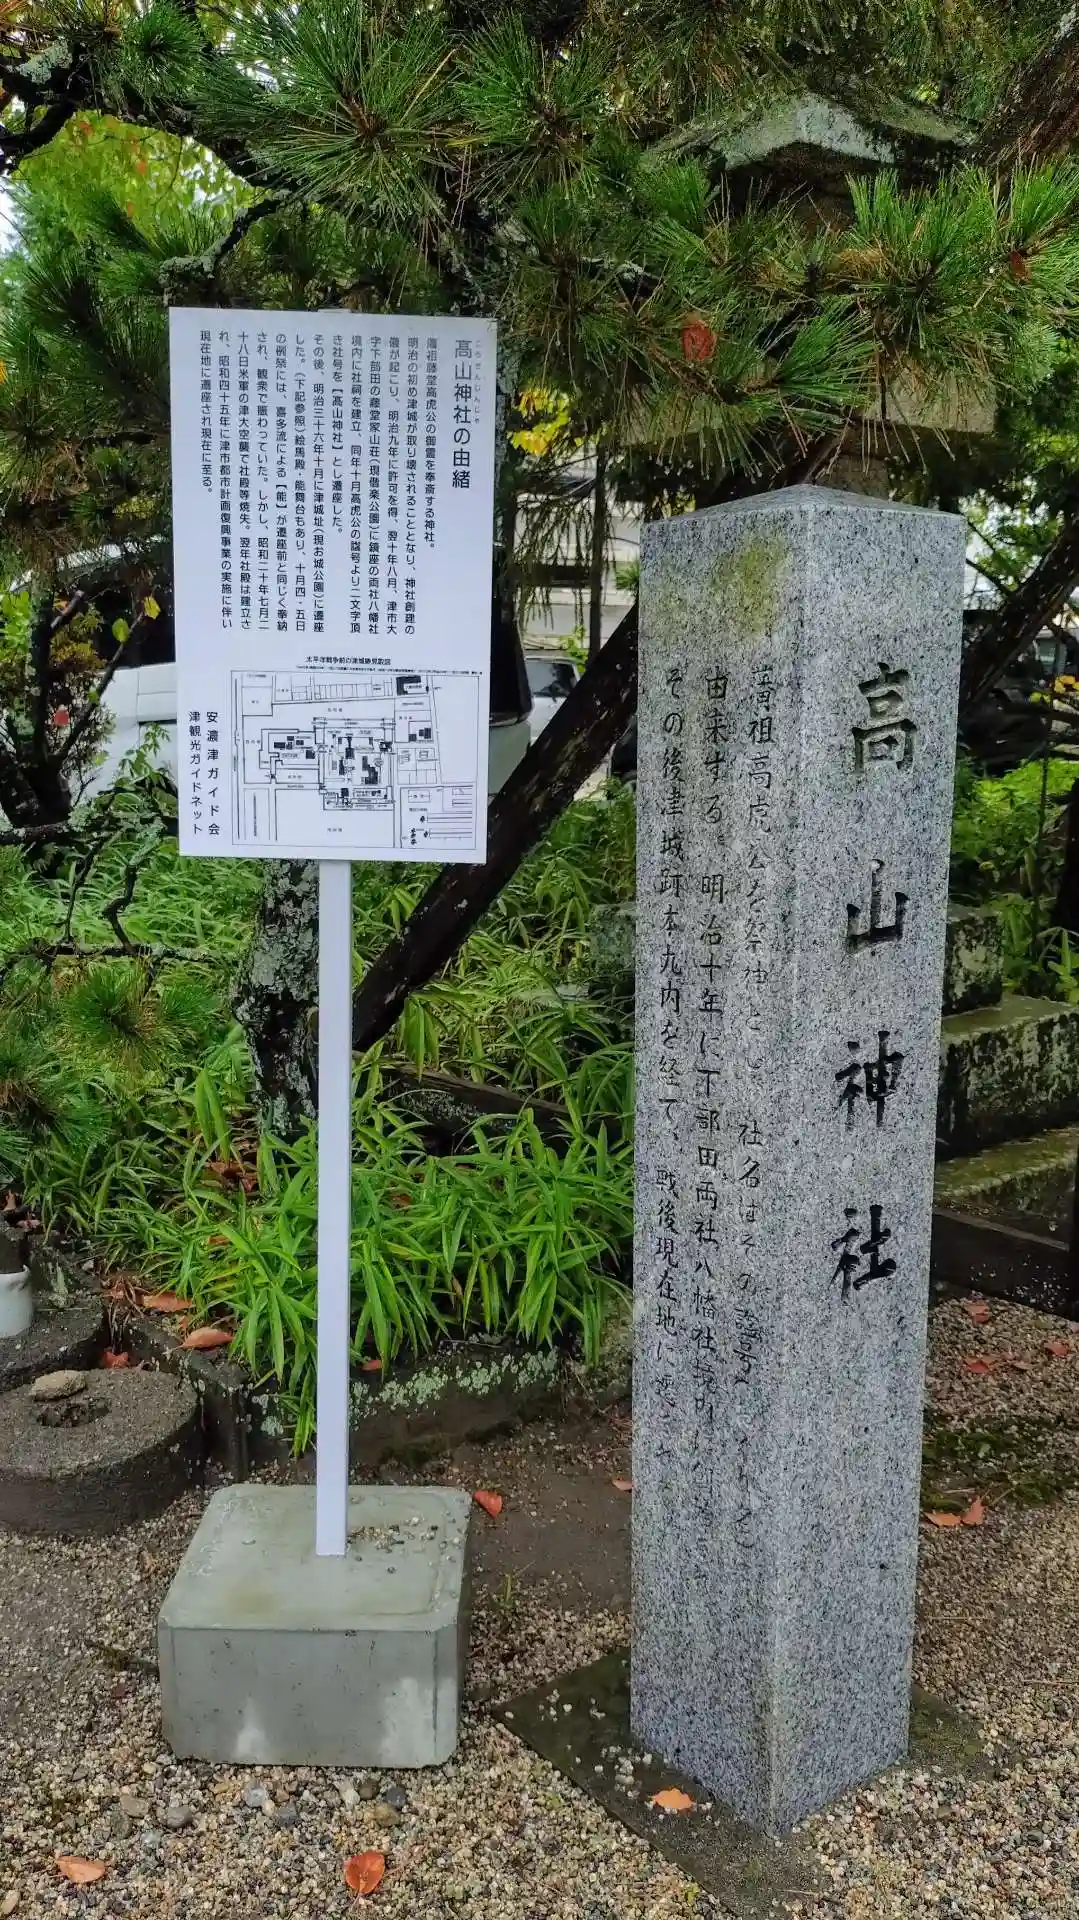 高山神社の由緒
こうざんじんじゃ
藩祖藤堂高虎公の御霊を奉斎する神社。
明治の初め津城が取り壊されることとなり、神社創建の
儀が起こり、明治九年に許可を得、翌十年八月、津市大
字下部田の藤堂家山荘(現偕楽公園)に鎮座の両社八幡社
境内に社祠を建立、同年十月高虎公の諡号より二文字頂
き社号を【高山神社】とし遷座した。
その後、明治三十六年十月に津城址(現お城公園)に遷座
した。(下記参照)絵馬殿・能舞台もあり、十月四・五日
の例祭には、喜多流による【能】が遷座前と同じく奉納
され、観衆で賑わっていた。しかし、昭和二十年七月二
十八日米軍の津大空襲で社殿等焼失。翌年社殿は建立さ
れ、昭和四十五年に津市都市計画復興事業の実施に伴い
現在地に遷座され現在に至る。
太平洋戦争前の津城跡見取図
安濃津ガイド会
津観光ガイドネット
高山神社
藩祖高虎公を祭神とし 社名はその諡号
由来する。明治十年に下部田両社八幡社境内に
その後津城跡本丸内を経て、戦後現在地に